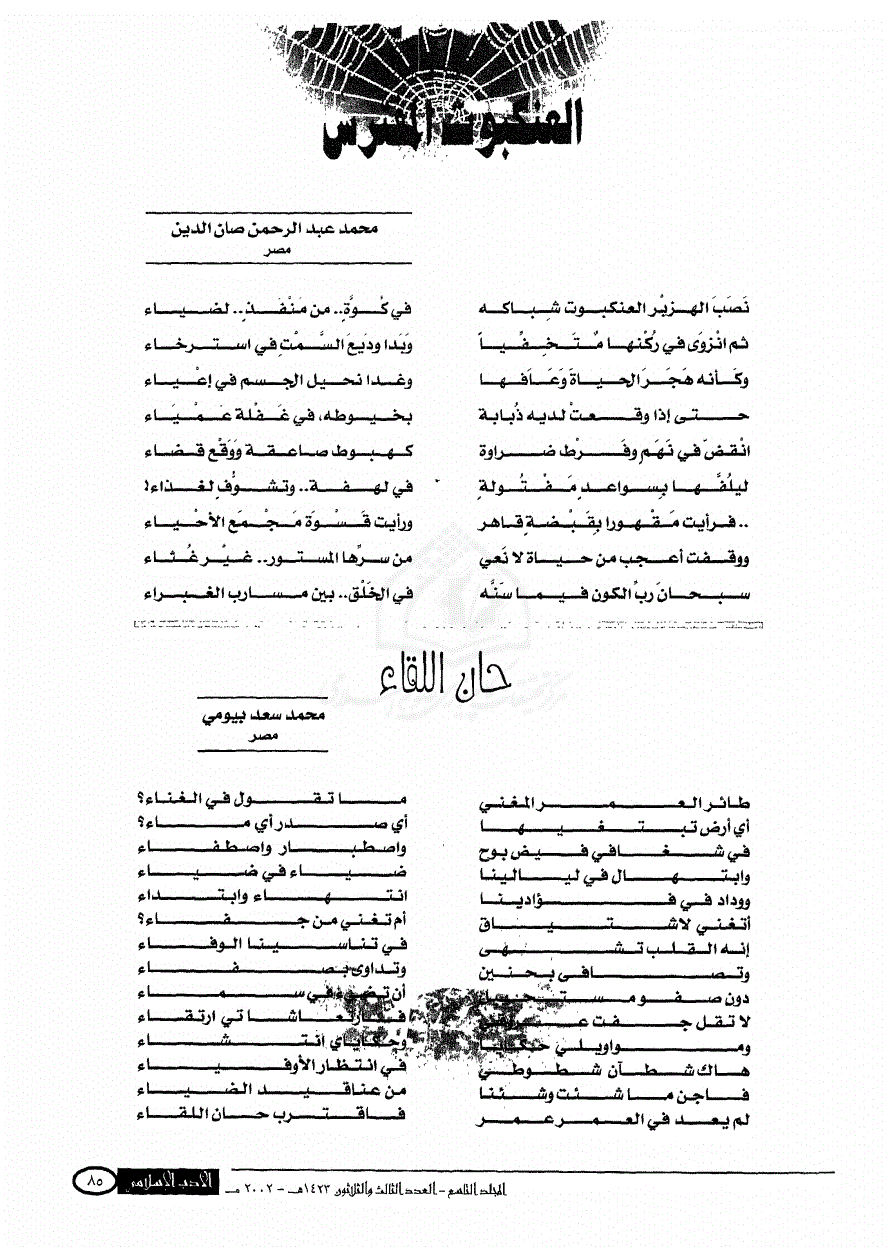 العنكبوت المفترس
محمد عبد الرحمن صان الدين
مصر
نَصَبَ الهزبْر العنكبوت شباكه في كُوَّة.. من مَنْفَذ.. لضياء
ثم انْزوَى في ركْنها مُتَخفِّياً وَبَدا وديَعَ السَّمْتِ في استرخاء
وكأنه هَجَرَ الحياةَ وَعَافها وغدا نحيل الجسم في إعْياء
حتى إذا وقعتْ لديه ذُبابة بخيوطه، في غَفْلة عمْيَاء
انْقضّ في نَهَم وفَرْط ضراوة كهبوط صاعقة وَوَقْع قضاء
ليلُفَّها بسواعدِ مَفْتُولةٍ في لهفة.. وتشوُّفٍ لغذاء!
.. فرأيت مَقْهورا بِقَبْضةِ قاهر ورأيت قَسْوَة مَجْمَع الأحْياء
ووقفت أعجب من حياة لا نَعي من سرِّها المستور.. غيْر غُثاء
سبحانَ ربِّ الكون فيما سَنَّه في الخَلْق.. بين مسارب الغبراء
حان اللقاء
محمد سعد بيومي
مصر
طائر العمر المغني ما تقول في الغناء؟
أي أرض تبتغيها أي صدر أي ماء؟
في شغافي فيض بوح واصطبار واصطفاء
وابتهال في ليالينا ضياء في ضياء
ووداد في فؤادينا انتهاء وابتداء
أتغني لاشتياق أم تغني من جفاء؟
إنه القلب تشهى في تناسينا الوفاء
وتصافى بحنين وتداوى بصفاء
دون صفو مستحيل أن تضيء في سماء
لا تقل جفت عروقي ارتقاء
ومواويلي حكايا وحكاياي انتشاء
هاك شطآن شطوطي في انتظار الأوفياء
فاجن ما شئت وشئنا من عناقيد الضياء
لم يعد في العمر عمر فاقترب حان اللقاء
المجلد التاسع - العدد الثالث والثلاثون ١٤٢٣هـ - ٢٠٠٢ مـ
الأدب الإسلامي
٨٥